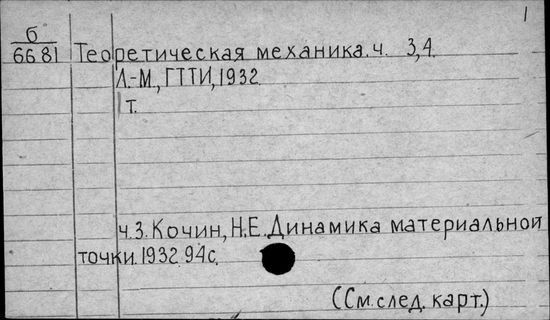 1
б
6681 Теоретическая механика. ч. 3,4.
Л.-М., ГТТИ, 1932.
т.
ч.3. Кочин, Н.Е. Динамика материальной
точки. 1932. 94с.
(См. след. карт.)